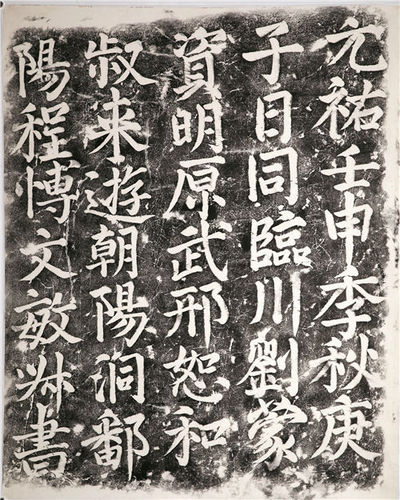 元祐壬申季秋庚
子日同臨川劉蒙
資明原武邢恕和
叔来遊朝陽洞鄱
陽程博文敏㳤書